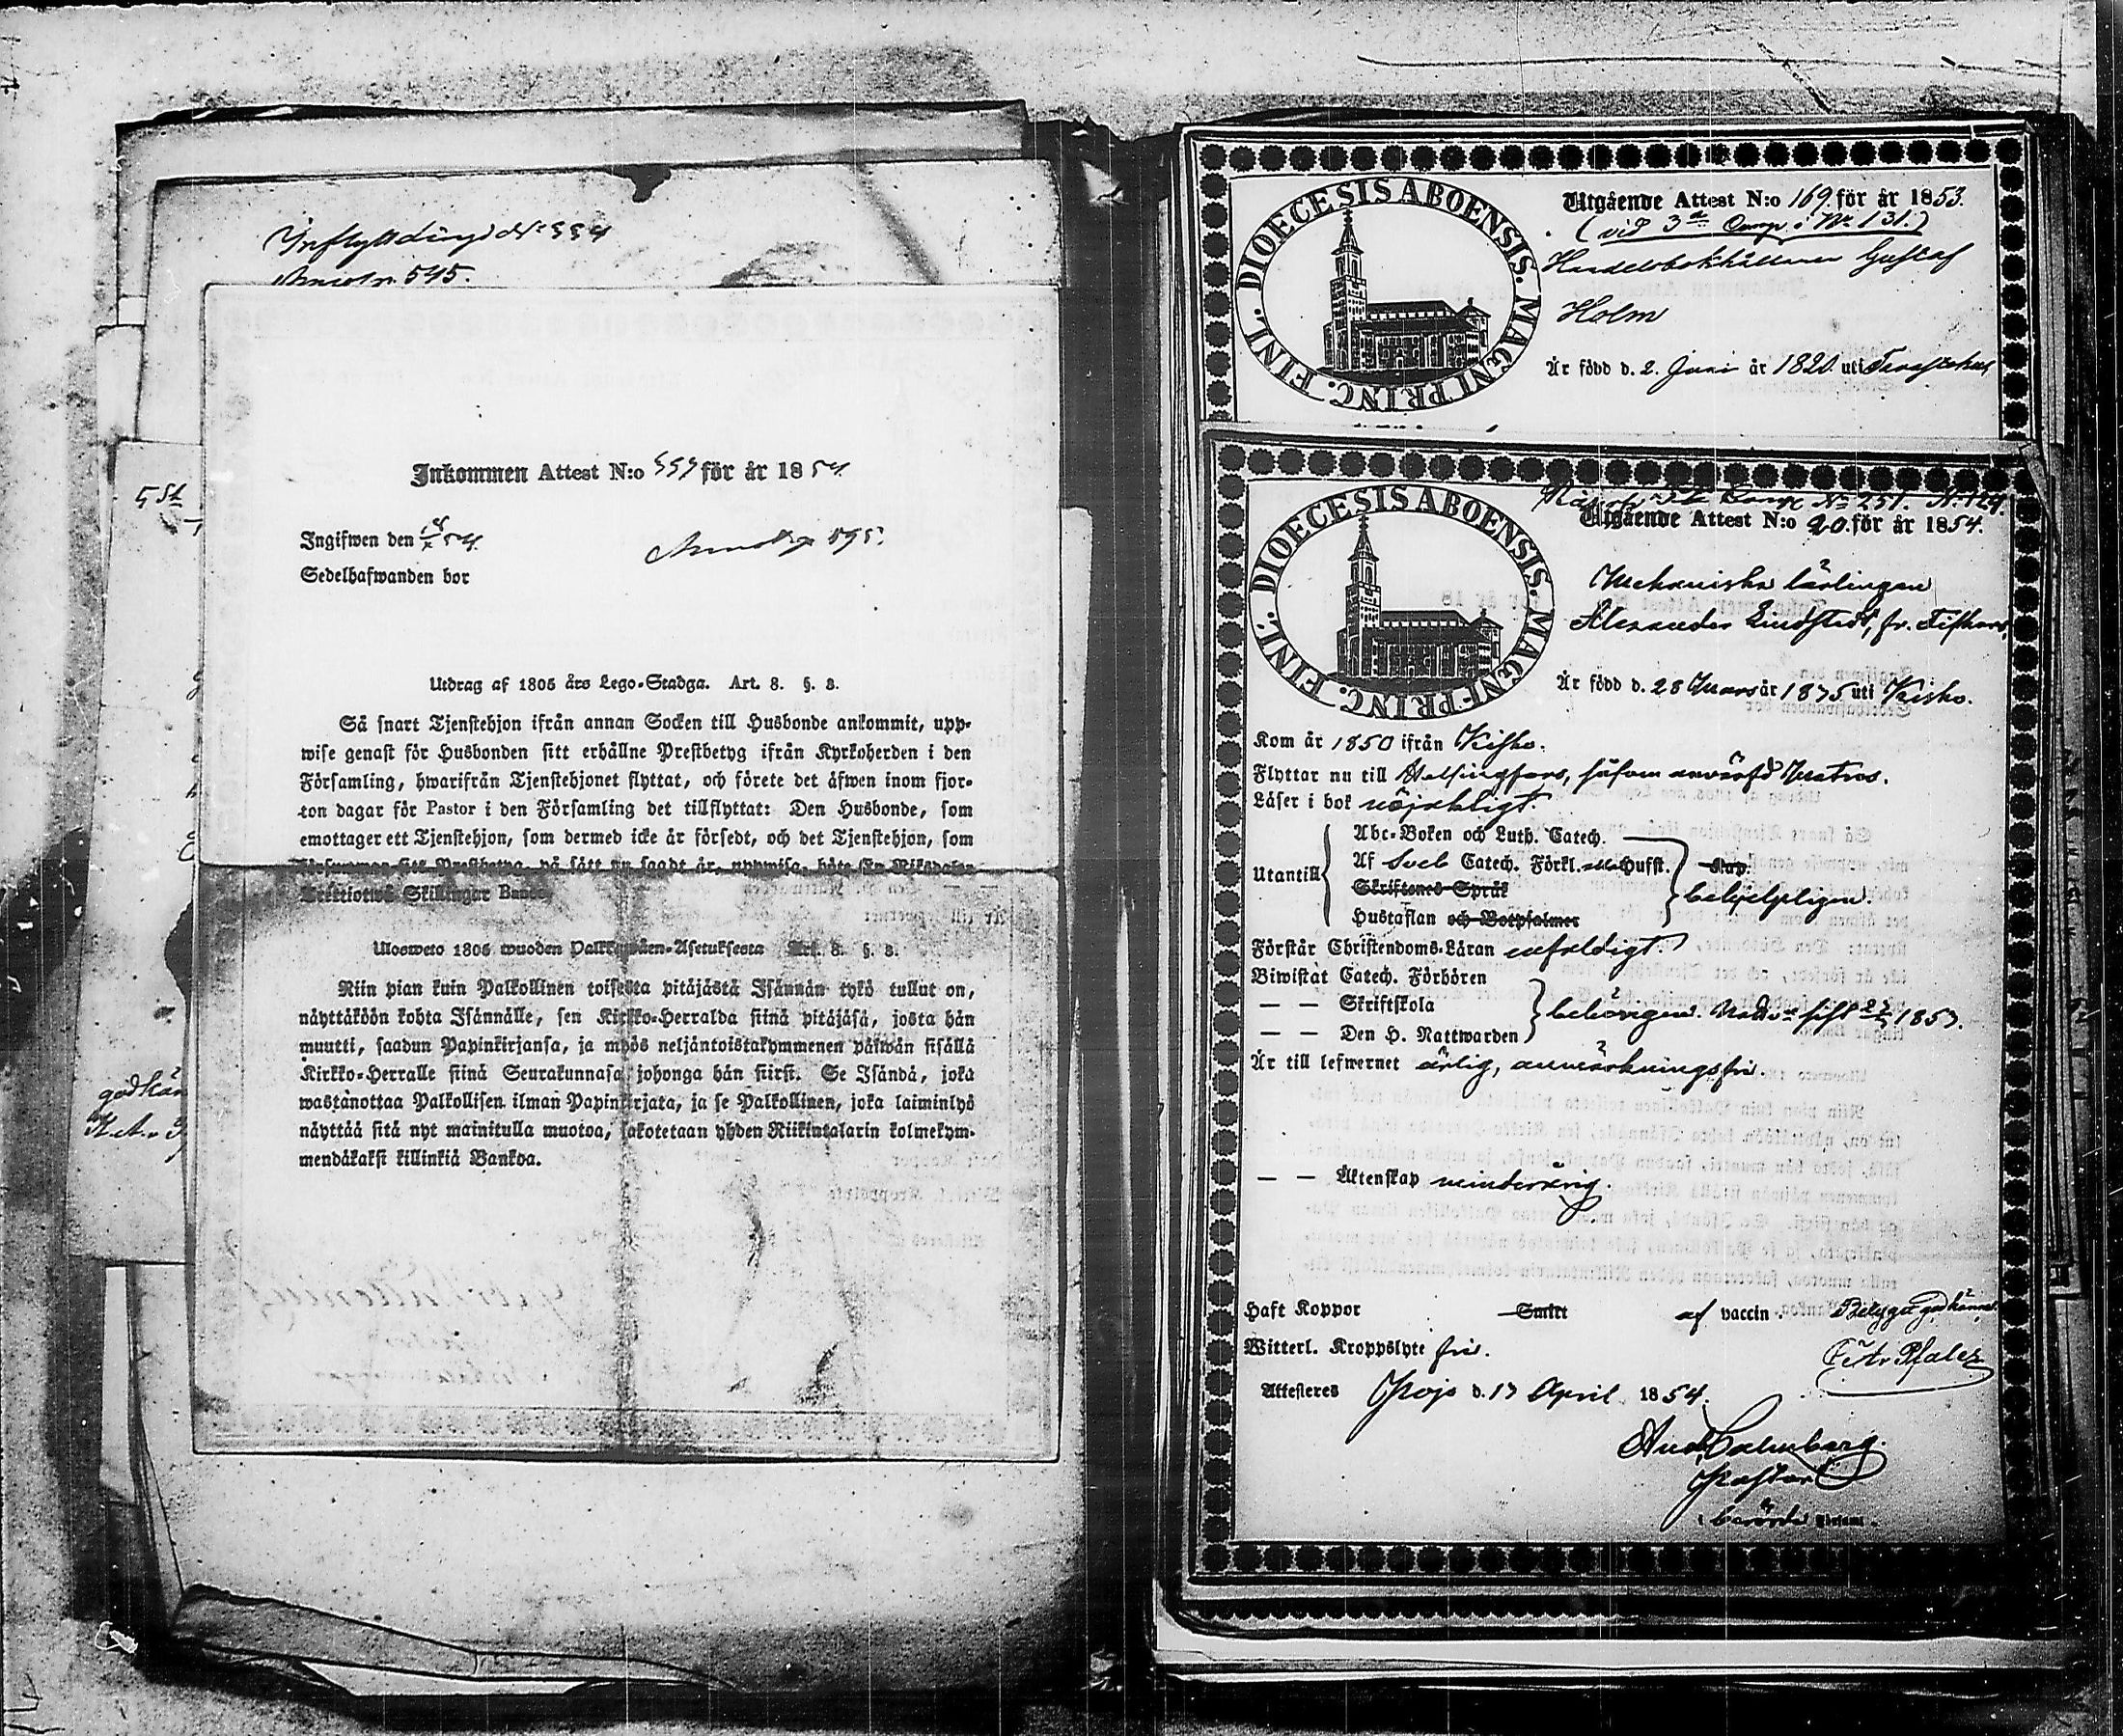 Inflyttdings N:o 554
545.
Inkommen Attest N:o 557 för år 1854
Ingifwen den
595.
Sedelhafwanden bor
Utdrag af 1805 års Lego-Stadga. Art. 8. §. 3.
Så snart Tjenstehjon ifrån annan Socken till Husbonde ankommit, upp-
wise genast för Husbonden sitt erhållne Prestbetyg ifrån Kyrkoherden i den
Församling, hwarifrån Tjenstehjonet flyttat, och förete det äfwen inom fjor-
ton dagar för Pastor i den Församling det tillflyttat: Den Husbonde, som
emottager ett Tjenstehjon, som dermed icke är försedt, och det Tjenstehjon, som
försummar sitt Prestbetyg, på sätt nu sagdt är, uppwisa, böte En Riksdaler
Trettiotwå Skillingar Banco
Ulosweto 1805 wuoden Palkkawäen-Asetuksesta Art. 8. §. 3.
Niin pian kuin Palkollinen toisesta pitäjästä Isännän tykö tullut on,
näyttäköön kohta Isännälle, sen Kirkko-Herralda siinä pitäjäsä, josta hän
muutti, saadun Papinkirjansa, ja myös neljäntoistakymmenen päiwän sisällä
Kirkko-Herralle siinä Seurakunnasa, johonga hän siirsi. Se Isändä, joka
wastanottaa Palkollisen ilman Papinkirjata, ja se Palkollinen, joka laiminlyö
näyttää sitä nyt mainitulla muotoa, sakotetaan yhden Riikintalarin kolmekym-
mendäkaksi killinkiä Bankoa.
5 st
godkän
DIOECESIS ABOENSIS. MAGNI PRINC. FINL.
Utgående Attest N:o 169 för år 1853.
(vid 3:a Comp. i N:o 131.)
Handelsbokhållaren Gustaf
Holm
Är född d. 2. Juni år 1820. uti Tavastehus
DIOECESIS ABOENSIS. MAGNI PRINC. FINL.
N:o 251. N:124.
Utgående Attest N:o 20. för år 1854.
Mekaniska lärlingen
Alexander Lindstedt, fr. Fiskars,
Är född d. 28 Mars år 1835 uti Kisko.
Kom år 1850 ifrån Kisko.
Flyttar nu till Helsingfors, såsom anvärfd Matros.
Läser i bok nöjakligt
Abc-Boken och Luth. Catech.
Utantill Af Sveb Catech. Förkl. Hufst. Kap.
Skriftenes Språk behjelpligen.
Hustaflan och Botpsalmer
Förstår Christendoms-Läran enfaldigt.
Biwistat Catech. Förhören
— — Skriftskola behörigen. sist 1853.
— — Den H. Nattwarden
Är till lefwernet ärlig, anmärkningsfri.
— — Äktenskap minderårig.
Haft Koppor Smitt af vaccin. Betyget godkännes
Witterl. Kroppslyte fri. Petr. Pfaler
Attesteras Pojo d. 17 April 1854.
And. Malmberg.
Pastor
i berörde Församl.